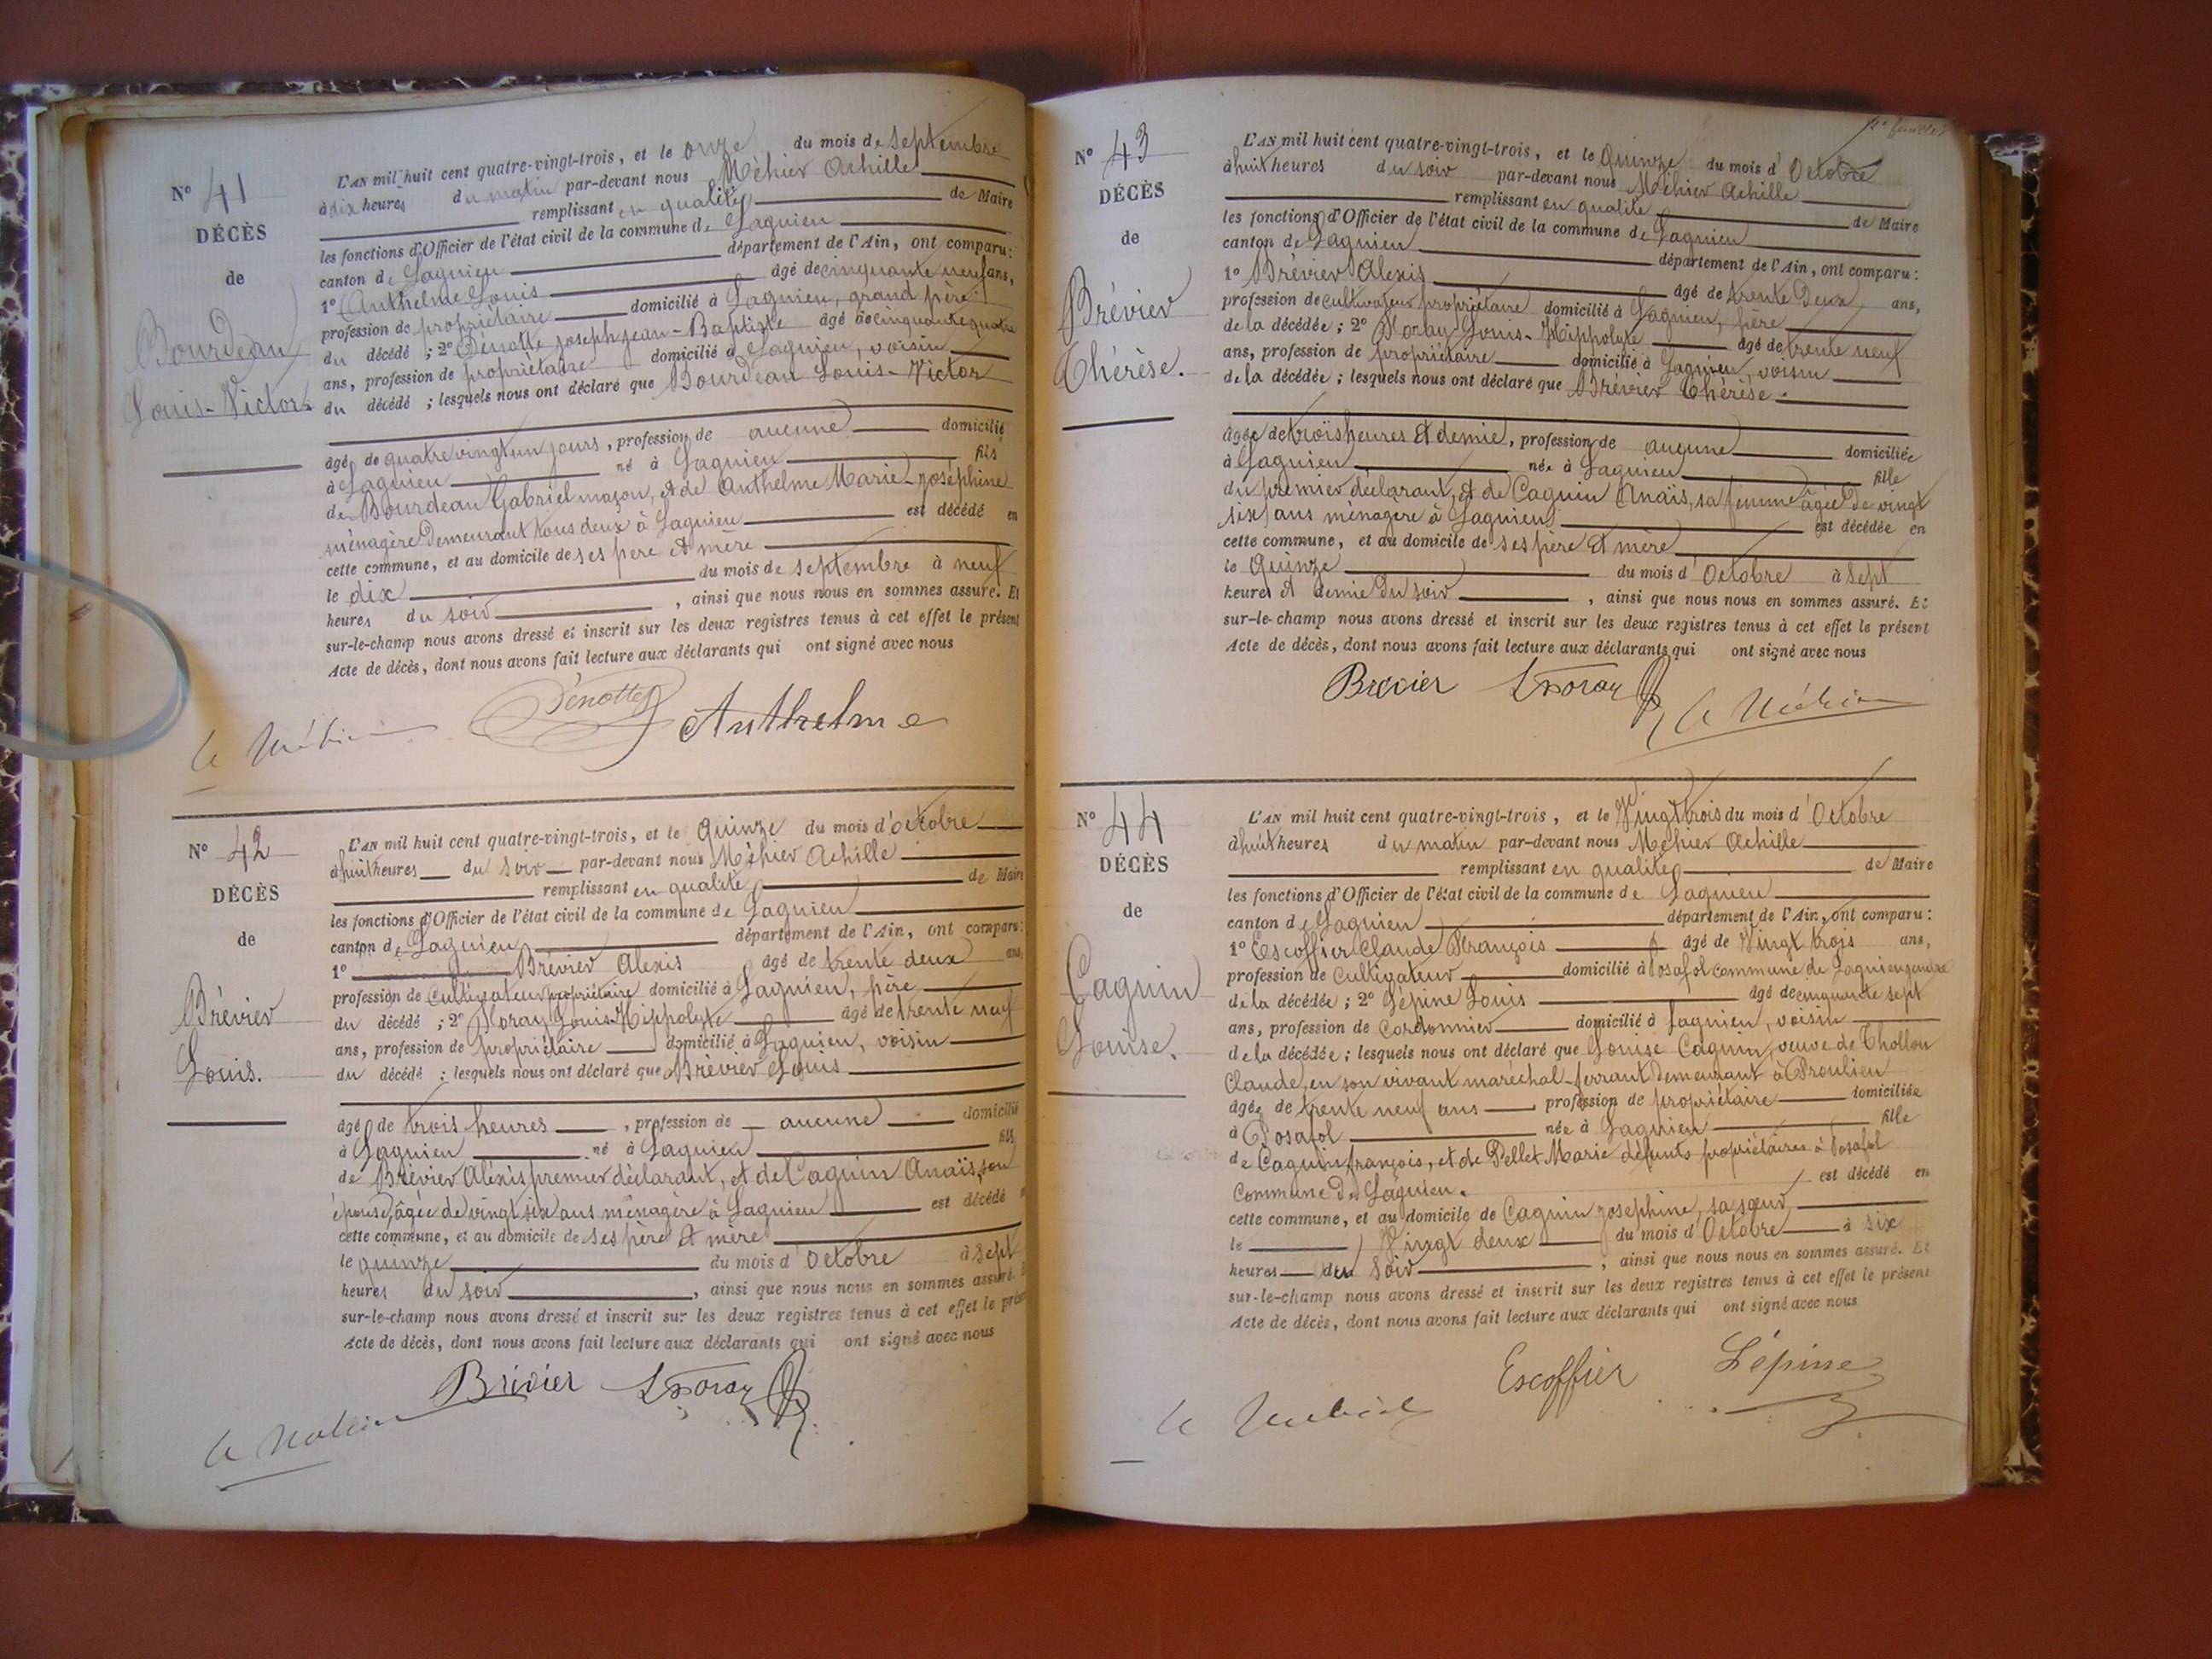 N° 41
DÉCÈS
de
Bourdeau
Louis-Victor
L'AN mil huit cent quatre-vingt-trois, et le onze du mois de septembre
à dix heures du matin par-devant nous Méhier Achille
remplissant en qualité de Maire
les fonctions d'Officier de l'état civil de la commune de Lagnieu
canton de Lagnieu département de l'Ain, ont comparu:
1° Anthelme Louis âgé de cinquante neuf ans,
profession de propriétaire domicilié à Lagnieu, grand père
du décédé ; 2° Dénotte joseph jean-Baptiste âgé de cinquante quatre
ans, profession de propriétaire domicilié à Lagnieu, voisin
du décédé ; lesquels nous ont déclaré que Bourdeau Louis-Victor
âgé de quatre vingt un jours, profession de aucune domicilié
à Lagnieu né à Lagnieu fils
de Bourdeau Gabriel maçon, et de Anthelme Marie-joséphine
ménagère demeurant tous deux à Lagnieu est décédé en
cette commune, et au domicile de ses père et mère
le dix du mois de septembre à neuf
heures du soir, ainsi que nous nous en sommes assuré. Et
sur-le-champ nous avons dressé et inscrit sur les deux registres tenus à cet effet le présent
Acte de décès, dont nous avons fait lecture aux déclarants qui ont signé avec nous
Dénotte Anthelme
N° 42
DÉCÈS
de
Brévier
Louis.
L'AN mil huit cent quatre-vingt-trois, et le quinze du mois d'octobre
à huit heures du soir par-devant nous Méhier Achille
remplissant en qualité de Maire
les fonctions d'Officier de l'état civil de la commune de Lagnieu
canton de Lagnieu département de l'Ain, ont comparu:
1° Brévier Alexis âgé de trente deux ans,
profession de cultivateur propriétaire domicilié à Lagnieu, père
du décédé ; 2° Moray Louis-Hippolyte âgé de trente neuf
ans, profession de propriétaire domicilié à Lagnieu, voisin
du décédé ; lesquels nous ont déclaré que Brévier Louis
âgé de trois heures, profession de aucune domicilié
à Lagnieu né à Lagnieu fils
de Brévier Alexis premier déclarant, et de Caguin Anaïs, son
épouse, âgée de vingt six ans ménagère à Lagnieu est décédé
cette commune, et au domicile de ses père et mère
le quinze du mois d'Octobre à sept
heures du soir, ainsi que nous nous en sommes assuré.
sur-le-champ nous avons dressé et inscrit sur les deux registres tenus à cet effet le présent
Acte de décès, dont nous avons fait lecture aux déclarants qui ont signé avec nous
Brévier
N° 43
DÉCÈS
de
Brévier
Thérèse.
L'AN mil huit cent quatre-vingt-trois, et le Quinze du mois d'Octobre
à huit heures du soir par-devant nous Méhier Achille
remplissant en qualité de Maire
les fonctions d'Officier de l'état civil de la commune de Lagnieu
canton de Lagnieu département de l'Ain, ont comparu:
1° Brévier Alexis âgé de trente deux ans,
profession de cultivateur propriétaire domicilié à Lagnieu, père
de la décédée ; 2° Moray Louis-Hippolyte âgé de trente neuf
ans, profession de propriétaire domicilié à Lagnieu, voisin
de la décédée ; lesquels nous ont déclaré que Brévier Thérèse.
âgée de trois heures et demie, profession de aucune domiciliée
à Lagnieu née à Lagnieu fille
du premier déclarant, et de Caguin Anaïs, sa femme âgée de vingt
six ans ménagère à Lagnieu est décédée en
cette commune, et au domicile de ses père et mère
le Quinze du mois d'Octobre à sept
heures et demie du soir, ainsi que nous nous en sommes assuré. Et
sur-le-champ nous avons dressé et inscrit sur les deux registres tenus à cet effet le présent
Acte de décès, dont nous avons fait lecture aux déclarants qui ont signé avec nous
Brévier
N° 44
DÉCÈS
de
Caguin
Louise.
L'AN mil huit cent quatre-vingt-trois, et le Vingt trois du mois d'Octobre
à huit heures du matin par-devant nous Méhier Achille
remplissant en qualité de Maire
les fonctions d'Officier de l'état civil de la commune de Lagnieu
canton de Lagnieu département de l'Ain, ont comparu:
1° Escoffier Claude François âgé de Vingt trois ans,
profession de Cultivateur domicilié à Posafol commune de Lagnieu, gendre
de la décédée ; 2° Lépine Louis âgé de cinquante sept
ans, profession de Cordonnier domicilié à Lagnieu, voisin
de la décédée ; lesquels nous ont déclaré que Louise Caguin, veuve de Thollon
Claude, en son vivant maréchal-ferrant demeurant à Proulieu
âgée de trente neuf ans, profession de propriétaire domiciliée
à Posafol née à Lagnieu fille
de Caguin françois, et de Pellet Marie défunts propriétaires à Posafol
Commune de Lagnieu. est décédé en
cette commune, et au domicile de Caguin josephine, sa sœur,
le Vingt deux du mois d'Octobre à six
heures du soir, ainsi que nous nous en sommes assuré. Et
sur-le-champ nous avons dressé et inscrit sur les deux registres tenus à cet effet le présent
Acte de décès, dont nous avons fait lecture aux déclarants qui ont signé avec nous
Escoffier Lépine